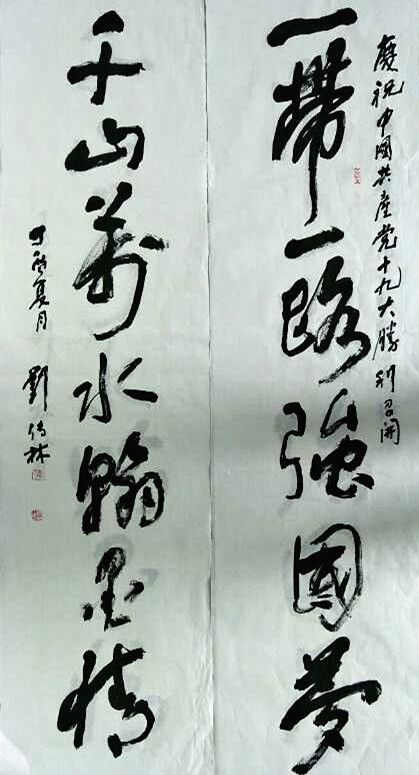 慶祝中國共產党十九大勝利召開
一帶一路強國夢
千山萬水翰墨情
丁酉夏月 劉傳林